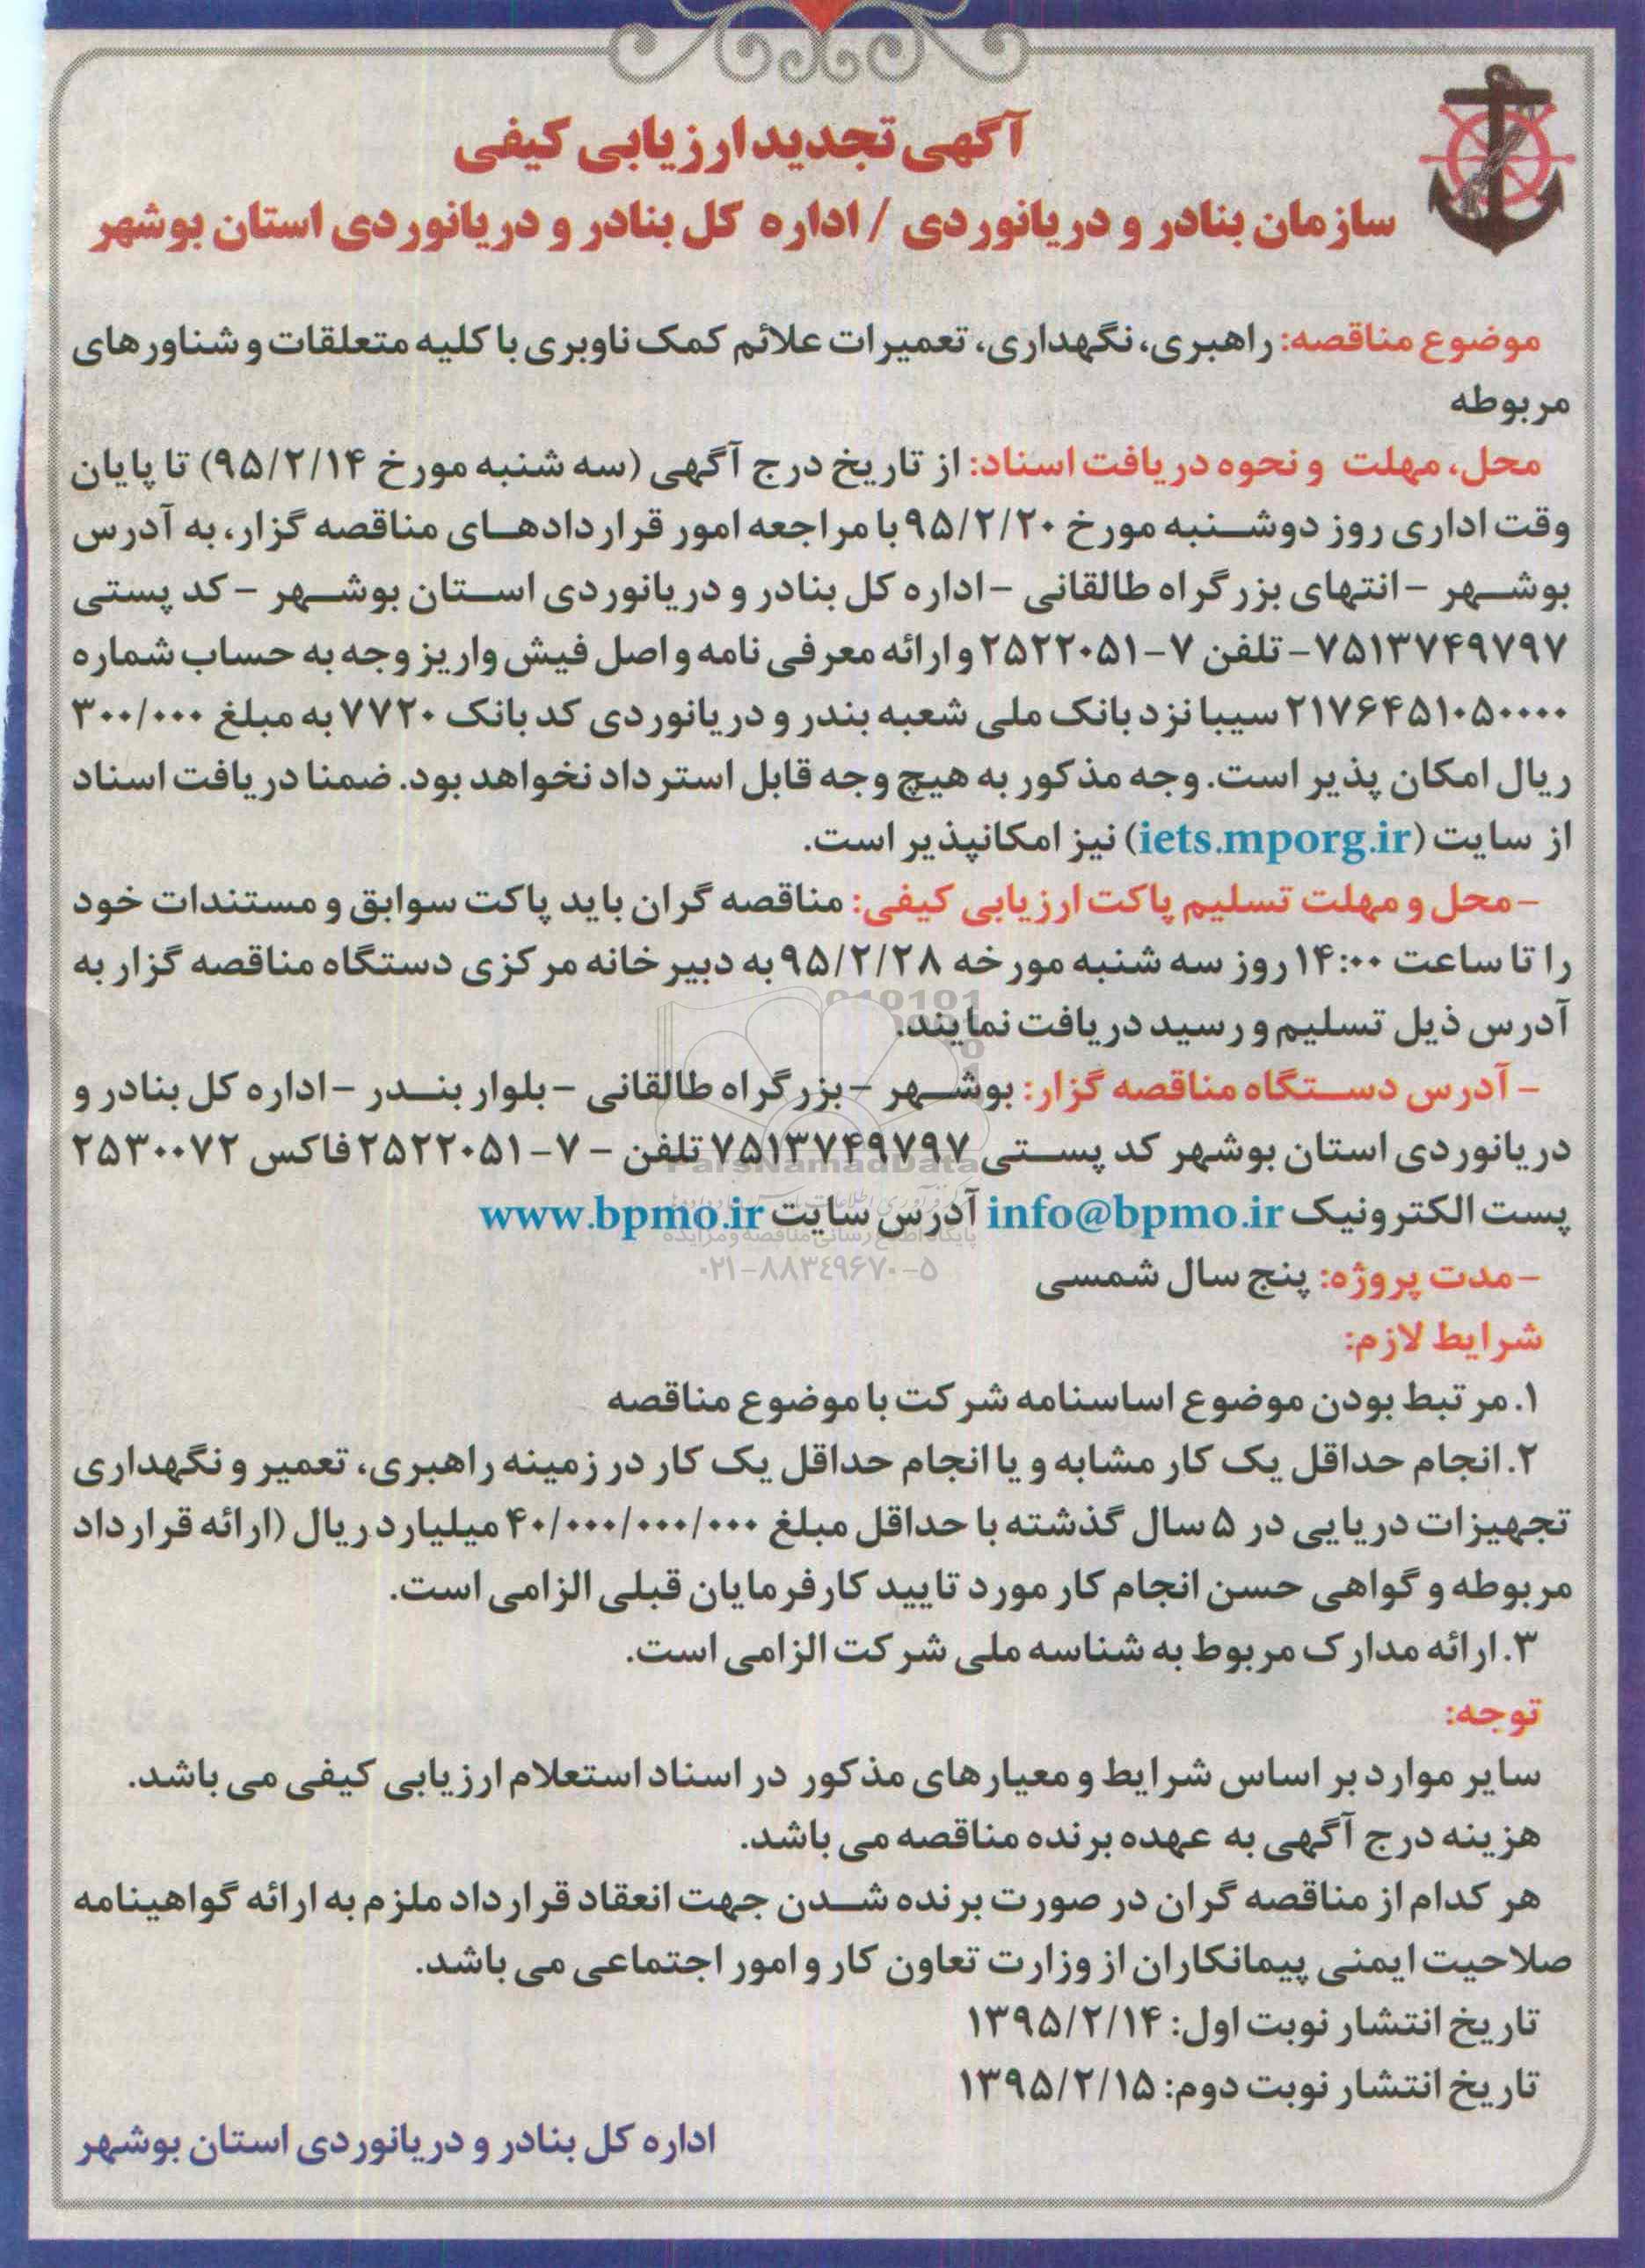 آگهی تجدید ارزیابی کیفی
سازمان بنادر و دریانوردی / اداره کل بنادر و دریانوردی استان بوشهر
موضوع مناقصه: راهبری، نگهداری، تعمیرات علائم کمک ناوبری با کلیه متعلقات و شناورهای
مربوطه
محل، مهلت و نحوه دریافت اسناد: از تاریخ درج آگهی (سه شنبه مورخ ۹۵/۲/۱۴) تا پایان
وقت اداری روز دوشنبه مورخ ۹۵/۲/۲۰ با مراجعه امور قراردادهای مناقصه گزار، به آدرس
بوشهر - انتهای بزرگراه طالقانی - اداره کل بنادر و دریانوردی استان بوشهر - کد پستی
۷۵۱۳۷۴۹۷۹۷- تلفن ۷-۲۵۲۲۰۵۱ و ارائه معرفی نامه و اصل فیش واریز وجه به حساب شماره
۲۱۷۶۴۵۱۰۵۰۰۰۰ سیبا نزد بانک ملی شعبه بندر و دریانوردی کد بانک ۷۷۲۰ به مبلغ ۳۰۰/۰۰۰
ریال امکان پذیر است. وجه مذکور به هیچ وجه قابل استرداد نخواهد بود. ضمنا دریافت اسناد
از سایت (iets.mporg.ir) نیز امکانپذیر است.
- محل و مهلت تسلیم پاکت ارزیابی کیفی: مناقصه گران باید پاکت سوابق و مستندات خود
را تا ساعت ۱۴:۰۰ روز سه شنبه مورخه ۹۵/۲/۲۸ به دبیرخانه مرکزی دستگاه مناقصه گزار به
آدرس ذیل تسلیم و رسید دریافت نمایند.
- آدرس دستگاه مناقصه گزار: بوشهر - بزرگراه طالقانی - بلوار بندر - اداره کل بنادر و
دریانوردی استان بوشهر کد پستی ۷۵۱۳۷۴۹۷۹۷ تلفن - ۷-۲۵۲۲۰۵۱ فاکس ۲۵۳۰۰۷۲
ParsNamadData
پست الکترونیک info@bpmo.ir آدرس سایت www.bpmo.ir
پایگاه اطلاع رسانی مناقصه و مزایده
۰۲۱-۸۸۳۴۹۶۷۰-۵
- مدت پروژه: پنج سال شمسی
شرایط لازم:
۱. مرتبط بودن موضوع اساسنامه شرکت با موضوع مناقصه
۲. انجام حداقل یک کار مشابه و یا انجام حداقل یک کار در زمینه راهبری، تعمیر و نگهداری
تجهیزات دریایی در ۵ سال گذشته با حداقل مبلغ ۴۰/۰۰۰/۰۰۰/۰۰۰ میلیارد ریال (ارائه قرارداد
مربوطه و گواهی حسن انجام کار مورد تایید کارفرمایان قبلی الزامی است.
۳. ارائه مدارک مربوط به شناسه ملی شرکت الزامی است.
توجه:
سایر موارد بر اساس شرایط و معیارهای مذکور در اسناد استعلام ارزیابی کیفی می باشد.
هزینه درج آگهی به عهده برنده مناقصه می باشد.
هر کدام از مناقصه گران در صورت برنده شدن جهت انعقاد قرارداد ملزم به ارائه گواهینامه
صلاحیت ایمنی پیمانکاران از وزارت تعاون کار و امور اجتماعی می باشد.
تاریخ انتشار نوبت اول: ۱۳۹۵/۲/۱۴
تاریخ انتشار نوبت دوم: ۱۳۹۵/۲/۱۵
اداره کل بنادر و دریانوردی استان بوشهر